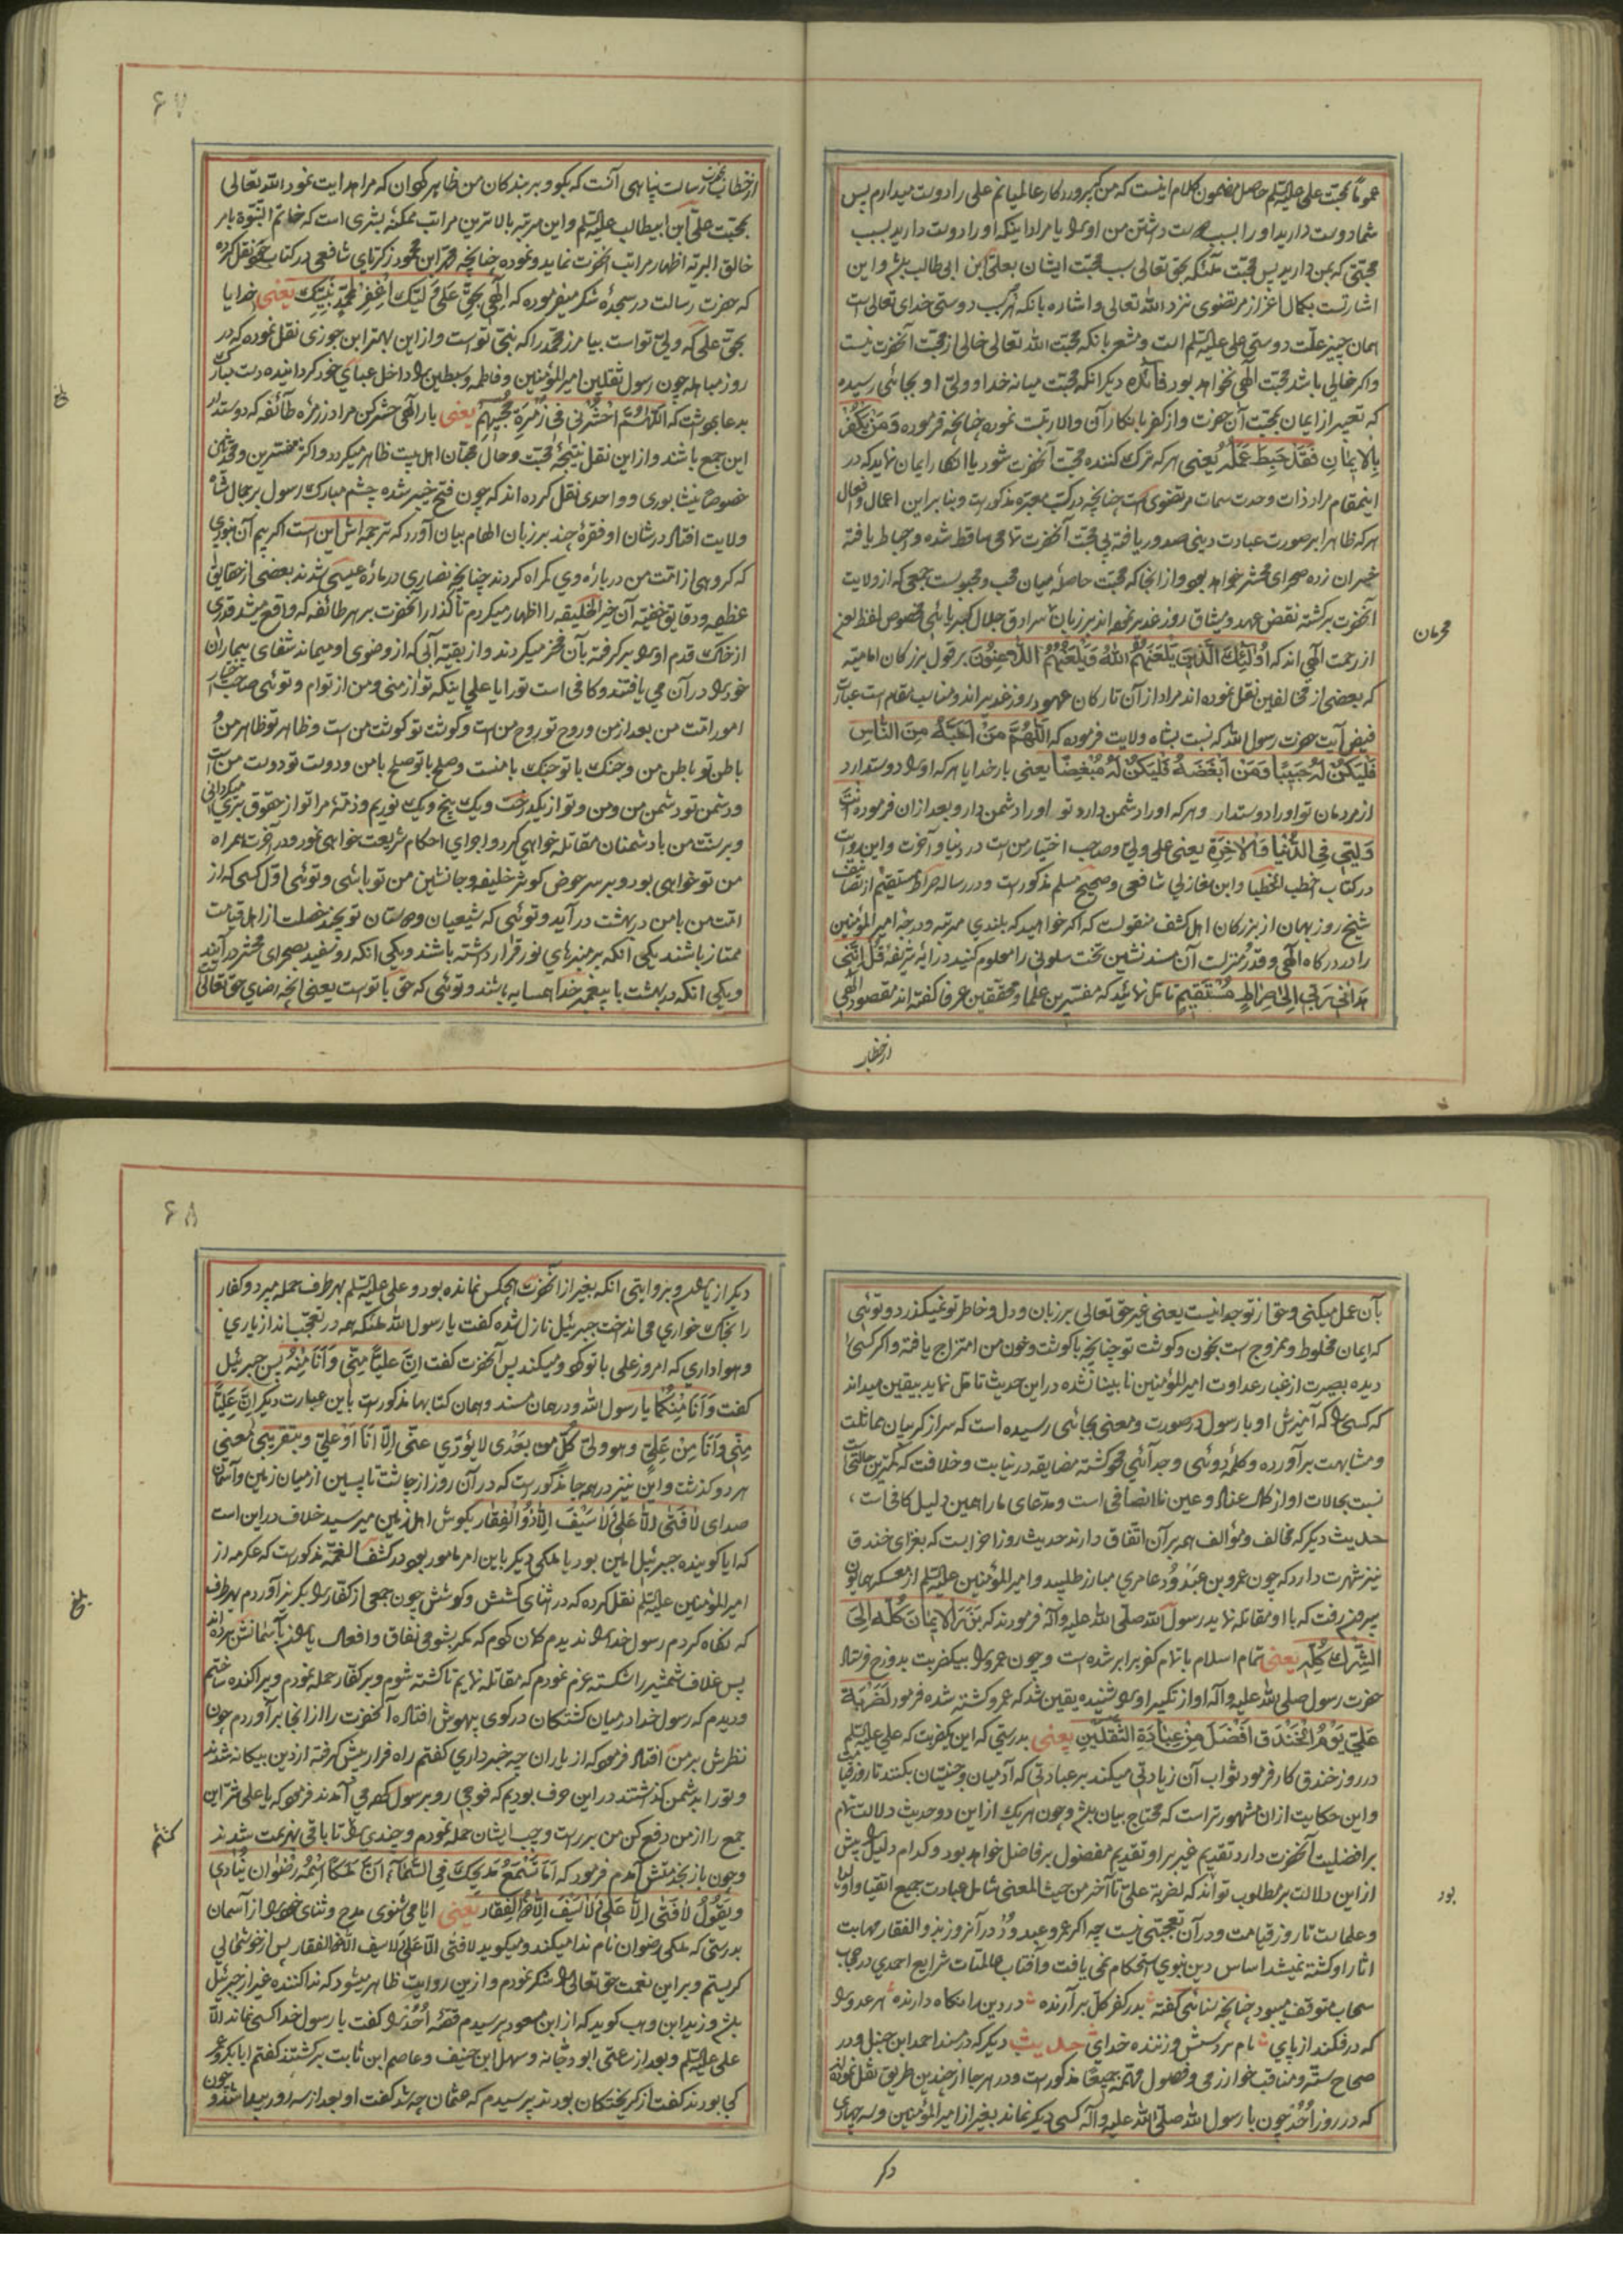 عموماً محبت علی علیه السلم حاصل مضمون کلام اینست که من که پروردگار عالمیانم علی را دوست میدارم پس
شما دوست دارید او را بسبب دوست داشتن من او را یا مراد اینکه او را دوست دارید بسبب
محبتی که بمن دارید پس محبت ملائکه بحق تعالی سبب محبت ایشان بعلی ابن ابی طالب باشد و این
اشارتست بکمال اعزاز مرتضوی نزد الله تعالی و اشاره بانکه هر که سبب دوستی خدای تعالی است
همان چیز علت دوستی علی علیه السلم است و مشعر بانکه محبت الله تعالی خالی از محبت آنحضرت نیست
و اگر خالی باشد محبت الهی نخواهد بود فائده دیگر انکه محبت میانه خدا و ولی او بجائی رسیده
که تعبیر از ایمان بمحبت آن حضرت و از کفر بانکار آن والا رتبت نموده چنانچه فرموده وَمَنْ یَکْفُرْ
بِالْاِیمَانِ فَقَدْ حَبِطَ عَمَلُهُ یعنی هر که ترک کننده محبت آنحضرت شود یا انکار ایمان نماید که در
اینمقام مراد ذات وحدت سمات مرتضوی است چنانچه در کتب معتبره مذکورست و بنا بر این اعمال و افعال
هر که ظاهرا بر صورت عبادت دینی صدور یافته بی محبت آنحضرت تمامی ساقط شده و احباط یافته
خسران زده صحرای محشر خواهد بود و از انجا که محبت حاصله میان محب و محبوبست جمعی که از ولایت
آنحضرت برگشته نقض عهد و میثاق روز غدیر نموده اند بر زبان سرادق جلال کبریائی مخصوص لفظ لعن
از رحمت الهی اند که اُولئِکَ الَّذِینَ یَلْعَنُهُمُ اللهُ وَیَلْعَنُهُمُ اللاعِنُونَ بر قول بزرگان امامیه
که بعضی از مخالفین نقل نموده اند مراد از آن تارکان عهود روز غدیر اند و مناسب مقام است عبارت
فیض آیت حضرت رسول الله که نسبت بشاه ولایت فرموده که اَللّهُمَّ مَنْ اَحَبَّهُ مِنَ النَّاسِ
فَلْیَکُنْ لَهُ حَبِیبًا وَمَنْ اَبْغَضَهُ فَلْیَکُنْ لَهُ مُبْغِضًا یعنی بار خدایا هر که او را دوستدارد
از مردمان تو او را دوستدار و هر که او را دشمن دارد تو او را دشمن دار و بعد از ان فرموده اَنْتَ
وَلِیِّی فِی الدُّنْیَا وَالْآخِرَةِ یعنی علی ولی و صاحب اختیار من است در دنیا و آخرت و این روایت
در کتاب اخطب الخطبا و ابن مغازلی شافعی و صحیح مسلم مذکورست و در رساله صراط مستقیم از تصانیف
شیخ روز بهان از بزرگان اهل کشف منقولست که اگر خواهید که بلندی مرتبه و درجه امیر المؤمنین
را در درگاه الهی و قدر و منزلت آن مسند نشین تخت سلونی را معلوم کنید در ایه شریفه قُلْ اِنَّنِی
هَدَانِی رَبِّی اِلَی صِرَاطٍ مُسْتَقِیمٍ تامل نمائید که مفسرین علما و محققین عرفا گفته اند مقصود الهی
محرمان
از خطاب
۶۷
از خطاب بحضرت رسالت پناهی آنست که بگو و بر بندکان من ظاهر گردان که مرا هدایت نمود الله تعالی
بمحبت علی ابن ابیطالب علیه السلم و این مرتبه بالاترین مراتب ممکنهٔ بشری است که خاتم النبوة بامر
خالق البریه اظهار مراتب آنحضرت نماید و نموده چنانچه محمد ابن محمود زکریای شافعی در کتاب خود نقل کرده
که حضرت رسالت در سجدهٔ شکر میفرموده که اِلٰهِی بِحَقِّ عَلِیٍّ وَلِیِّکَ اغْفِرْ لِمُحَمَّدٍ نَبِیِّکَ یعنی خدایا
بحق علی که ولی تو است بیامرز محمد را که نبی تو است و از این بهتر ابن جوزی نقل نموده که در
روز مباهله چون رسول ثقلین امیر المؤمنین و فاطمه و سبطین را داخل عبای خود گردانیده دست مبارک
بدعا برداشت که اَللّٰهُمَّ احْشُرْنِی فِی زُمْرَةِ مُحِبِّیهِمْ یعنی بار الهی حشر کن مرا در زمرهٔ طائفه که دوستدار
این جمع باشند و از این نقل نتیجهٔ محبت و حال محبان اهل بیت ظاهر میگردد و اکثر مفسرین و محدثین
خصوصا نیشابوری و واحدی نقل کرده اند که چون فتح خیبر شده چشم مبارک رسول بر جمال شاه
ولایت افتاد در شان او فقرهٔ چند بر زبان الهام بیان آورد که ترجمه اش این است اگر بیم آن نبودی
که گروهی از امت من در بارهٔ وی گمراه گردند چنانچه نصاری در بارهٔ عیسی شدند بعضی از حقایق
عظیمه و دقایق خفیه آن خیر الخلیقه را اظهار میکردم تا گذار آنحضرت بر هر طائفه که واقع میشد قدری
از خاک قدم او را برگرفته بآن فخر میکردند و از بقیه آبی که از وضوی او میماند شفای بیماران
خود را در آن می یافتند و کافی است تو را یا علی اینکه تو از منی و من از توام و توئی صاحب اختیار
امور امت من بعد از من و روح تو روح من است و گوشت تو گوشت من است و ظاهر تو ظاهر من و
باطن تو باطن من و جنک با تو جنک با منست و صلح با تو صلح با من و دوست تو دوست من است
و دشمن تو دشمن من و من و تو از یکدرخت و یک پنج و یک نوریم و ذمهٔ مرا تو از حقوق بری میگردانی
و بر سنت من با دشمنان مقاتله خواهی کرد و اجرای احکام شریعت خواهی نمود و در آخرت همراه
من تو خواهی بود و بر سر حوض کوثر خلیفه و جانشین من تو باشی و توئی اول کسی که از
امت من با من در بهشت در آید و توئی که شیعیان و دوستان تو بچند خصلت از اهل قیامت
ممتاز باشند یکی انکه بر منبرهای نور قرار داشته باشند و یکی انکه رو سفید بصحرای محشر در آیند
و یکی انکه در بهشت با پیغمبر خدا همسایه باشند و توئی که حق با تو است یعنی انچه رضای حق تعالی است
بلغ
بآن عمل میکنی و حق از تو جدا نیست یعنی غیر حق تعالی بر زبان و دل و خاطر تو نمیگذرد و توئی
که ایمان مخلوط و ممزوج است بخون و گوشت تو چنانچه با گوشت و خون من امتزاج یافته و اگر کسی را
دیده بصیرت از غبار عداوت امیر المؤمنین نابینا نشده در این حدیث تامل نماید بیقین میداند
که کسی را که آمیزش او با رسول در صورت و معنی بجائی رسیده است که سر از گریبان مماثلت
و مشابهت برآورده و کلمهٔ دوئی و جدائی محو گشته مضایقه در نیابت و خلافت که کمترین حالتی است
نسبت بحالات او از کمال عناد و عین ناانصافی است و مدعای ما را همین دلیل کافی است ،
حدیث دیگر که مخالف و مؤالف همه بر آن اتفاق دارند حدیث روز احزابست که بغزای خندق
نیز شهرت دارد که چون عمرو بن عَبْدُوُد عامری مبارز طلبید و امیر المؤمنین علیه السلم از معسکر همایون
بیرون رفت که با او مقاتله نماید رسول الله صلی الله علیه و آله فرمودند که بَرَزَ الْاِیمَانُ کُلُّهُ اِلَی
الشِّرْکِ کُلِّهِ یعنی تمام اسلام با تمام کفر برابر شده است و چون عمرو را بیکضربت بدوزخ فرستاد
حضرت رسول صلی الله علیه و آله آواز تکبیر او را شنیده یقین شد که عمرو کشته شده فرمود لَضَرْبَةُ
عَلِیٍّ یَوْمَ الْخَنْدَقِ اَفْضَلُ مِنْ عِبَادَةِ الثَّقَلَیْنِ یعنی بدرستی که این یکضربت که علی علیه السلم
در روز خندق کار فرمود ثواب آن زیادتی میکند بر عبادتی که آدمیان و جنیان بکنند تا روز قیامت
و این حکایت از ان مشهورتر است که محتاج بیان باشد و چون هر یک از این دو حدیث دلالت تمام
بر افضلیت آنحضرت دارد تقدیم غیر بر او تقدیم مفضول بر فاضل خواهد بود و کدام دلیل پیش
از این دلالت بر مطلوب تواند که لضربة علی تا آخر من حیث المعنی شامل عبادت جمیع اتقیا و اولیا
و علماست تا روز قیامت و در آن تعجبی نیست چه اگر عمرو عبدود در آنروز بذو الفقار مهابت
اثار او کشته نمیشد اساس دین نبوی استحکام نمی یافت و آفتاب عالمتاب شرایع احمدی در حجاب
سحاب متوقف میبود چنانچه سنائی گفته بدر کفر کل برآرنده در دین را نگاه دارنده هر عدو را
که در فکند از پای نام بردستش وزننده خدای حدیث دیگر که در مسند احمد ابن حنبل و در
صحاح سته و مناقب خوارزمی و فصول مهمه جمیعا مذکورست و در هر جا از چندین طریق نقل نموده اند
که در روز اُحُد چون با رسول الله صلی الله علیه و آله کسی دیگر نماند بغیر از امیر المؤمنین و سه چهاری
بود
دیگر
۶۸
دیگر از یاران و بروایتی انکه بغیر از آنحضرت هیچکس نمانده بود و علی علیه السلم بهر طرف حمله میبرد و کفار
را بخاک خواری می انداخت جبرئیل نازل شده گفت یا رسول الله ملئکه همه در تعجب اند از یاری
و هواداری که امروز علی با تو میکند پس آنحضرت گفت اِنَّ عَلِیًّا مِنِّی وَاَنَا مِنْهُ پس جبرئیل
گفت وَاَنَا مِنْکُمَا یا رسول الله و در همان مسند و همان کتابها مذکورست باین عبارت دیگر اِنَّ عَلِیًّا
مِنِّی وَاَنَا مِنْ عَلِیٍّ وهو ولی کُلِّ من بَعْدی لا یُؤدّی عنّی اِلّا اَنَا اَوْ عَلِیّ و بتقریبی معنی
هر دو گذشت و این نیز در همه جا مذکورست که در آن روز از چاشت تا پسین از میان زمین و آسمان
صدای لَا فَتَی اِلَّا عَلِی لَا سَیْفَ اِلَّا ذُو الْفِقَارِ بگوش اهل زمین میرسید خلاف در این است
که ایا گوینده جبرئیل امین بود یا ملکی دیگر باین امر مامور بود در کشف الغمه مذکورست که عکرمه از
امیر المؤمنین علیه السلم نقل کرده که در اثنای کشش و کوشش چون جمعی از کفار را بگریز آوردم بهر طرف
که نگاه کردم رسول خدا را ندیدم گمان کردم که مگر بشومی نفاق و افعال یاران بآسمانش برده اند
پس غلاف شمشیر را شکسته عزم نمودم که مقاتله نمایم تا کشته شوم و بر کفار حمله نمودم و پراکنده ساختم
و دیدم که رسول خدا در میان کشتگان در گوی بیهوش افتاده آنحضرت را از انجا برآوردم چون
نظرش بر من افتاد فرمود که از یاران چه خبر داری گفتم راه فرار پیش گرفته از دین بیگانه شدند
و تو را بدشمن گذاشتند در این حرف بودیم که فوجی رو برسول می آمدند فرمود که یا علی شر این
جمع را از من دفع کن من بر راست و چپ ایشان حمله نمودم و چندی را تا باقی بهزیمت شدند
و چون باز بخدمتش آمدم فرمود که اَمَا تَسْمَعُ مَدِیحَکَ فِی السَّمَاءِ اِنَّ مَلَکًا اسْمُهُ رِضْوَان یُنَادِی
وَیَقُولُ لَا فَتَی اِلَّا عَلِی لَا سَیْفَ اِلَّا ذُو الْفِقَار یعنی ایا می شنوی مدح و ثنای خود را از آسمان
بدرستی که ملکی رضوان نام ندا میکند و میگوید لا فتی الا علی لا سیف الا ذو الفقار پس از خوشحالی
گریستم و بر این نعمت حق تعالی را شکر نمودم و ازین روایت ظاهر میشود که ندا کننده غیر از جبرئیل
باشد و زید ابن وهب گوید که از ابن مسعود پرسیدم قصهٔ اُحُد را گفت با رسول خدا کسی نماند الا
علی علیه السلم و بعد از ساعتی ابو دجانه و سهل ابن حنیف و عاصم ابن ثابت برگشتند گفتم ایا بکر و عمر
کجا بودند گفت از گریختگان بودند پرسیدم که عثمان چه شد گفت او بعد از سه روز پیدا شد و چون
کشتم
بلغ